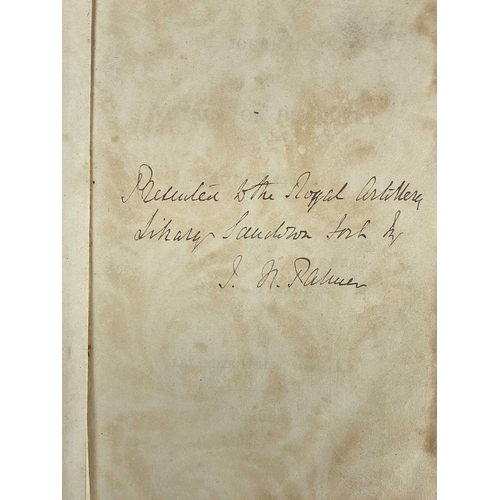 Presented to the Royal Artillery
Library Sandown Fort by
J. H. Palmer